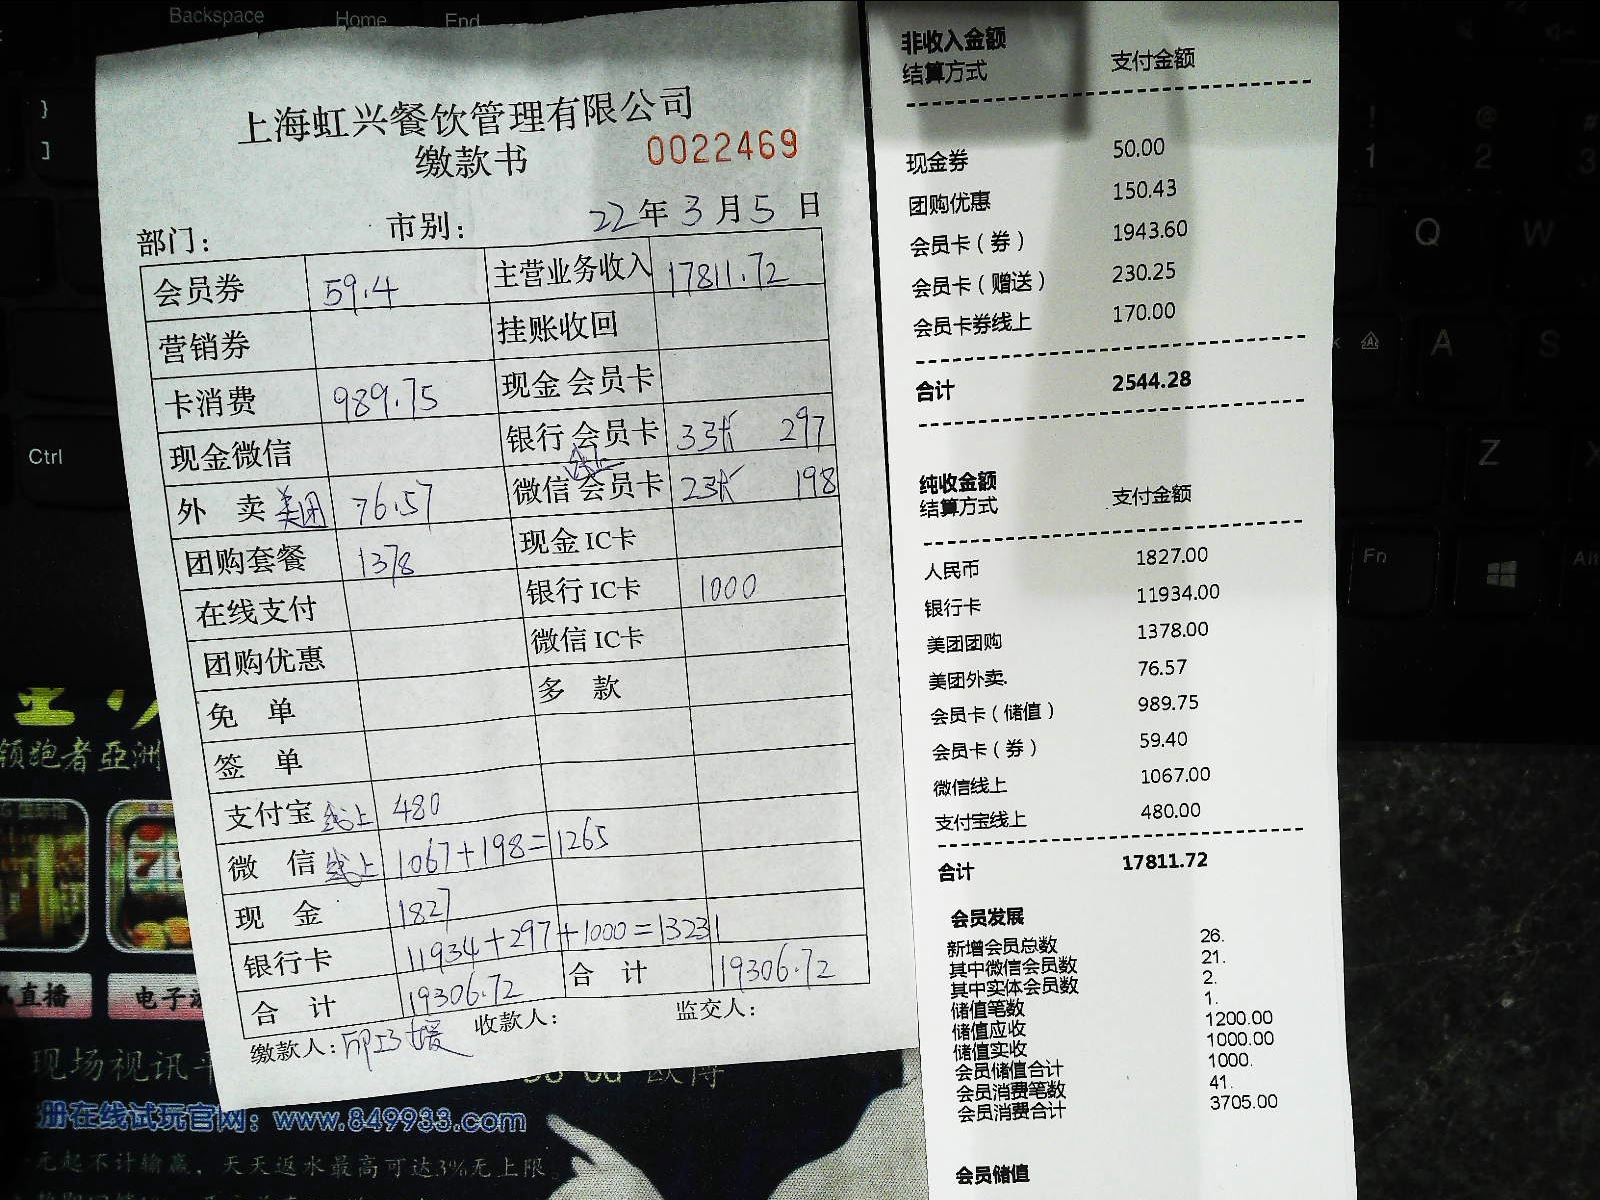 Backspace Home End
} ]
Ctrl
上海虹兴餐饮管理有限公司
缴款书 0022469
部门： 市别： 22年3月5日
会员券 59.4 主营业务收入 17811.72
营销券 挂账收回
卡消费 989.75 现金 会员卡
现金微信 银行 会员卡 33张 297
外 卖 美团 76.57 微信 会员卡 23张 198
团购套餐 1378 现金 IC卡
在线支付 银行 IC卡 1000
团购优惠 微信 IC卡
免 单 多 款
签 单
支付宝 线上 480
微 信 线上 1067+198=1265
现 金 1827
银行卡 11934+297+1000=13231
合 计 19306.72 合 计 19306.72
缴款人： 收款人： 监交人：
非收入金额
结算方式 支付金额
现金券 50.00
团购优惠 150.43
会员卡（券） 1943.60
会员卡（赠送） 230.25
会员卡券线上 170.00
合计 2544.28
纯收金额
结算方式 支付金额
人民币 1827.00
银行卡 11934.00
美团团购 1378.00
美团外卖. 76.57
会员卡（储值） 989.75
会员卡（券） 59.40
微信线上 1067.00
支付宝线上 480.00
合计 17811.72
会员发展
新增会员总数 26.
其中微信会员数 21.
其中实体会员数 2.
储值笔数 1.
储值应收 1200.00
储值实收 1000.00
会员储值合计 1000.
会员消费笔数 41.
会员消费合计 3705.00
会员储值
! @ #
1 2 3
Q W
A S
Z X
Fn Alt
领跑者 亞洲
直播 电子
现场视讯
册在线试玩官网：www.849933.com
元起不计输赢，天天返水最高可达3%无上限。